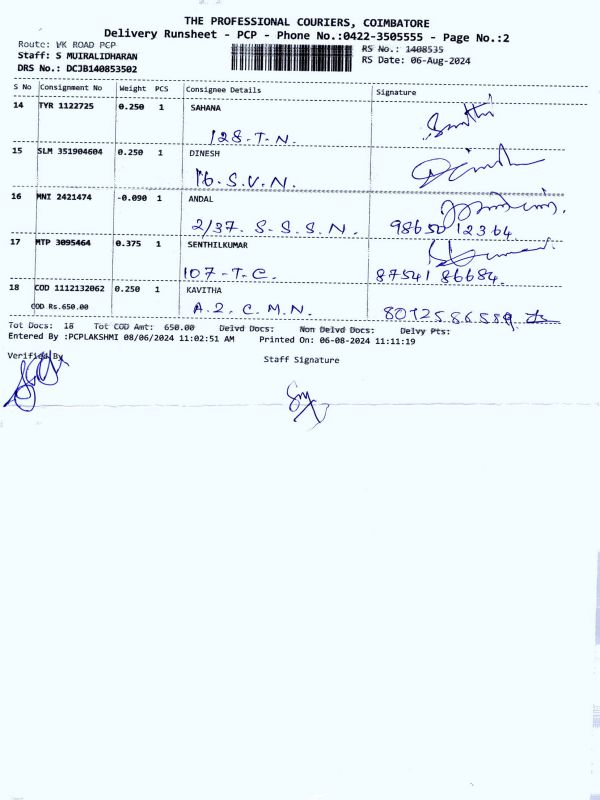 THE PROFESSIONAL COURIERS, COIMBATORE
Delivery Runsheet - PCP - Phone No.:0422-3505555 - Page No.:2
Route: VK ROAD PCP RS No.: 1408535
Staff: S MUIRALIDHARAN RS Date: 06-Aug-2024
DRS No.: DCJB140853502
S No Consignment No Weight PCS Consignee Details Signature
14 TYR 1122725 0.250 1 SAHANA
128-T.N.
15 SLM 351904604 0.250 1 DINESH
16-S.V.N.
16 MNI 2421474 -0.090 1 ANDAL
2/37. S-S.S.N. 98650 12364
17 MTP 3095464 0.375 1 SENTHILKUMAR
107-T.C. 87541 86684.
18 COD 1112132062 0.250 1 KAVITHA
COD Rs.650.00 A.2.C.M.N. 8072586589
Tot Docs: 18 Tot COD Amt: 650.00 Delvd Docs: Non Delvd Docs: Delvy Pts:
Entered By :PCPLAKSHMI 08/06/2024 11:02:51 AM Printed On: 06-08-2024 11:11:19
Verified By Staff Signature